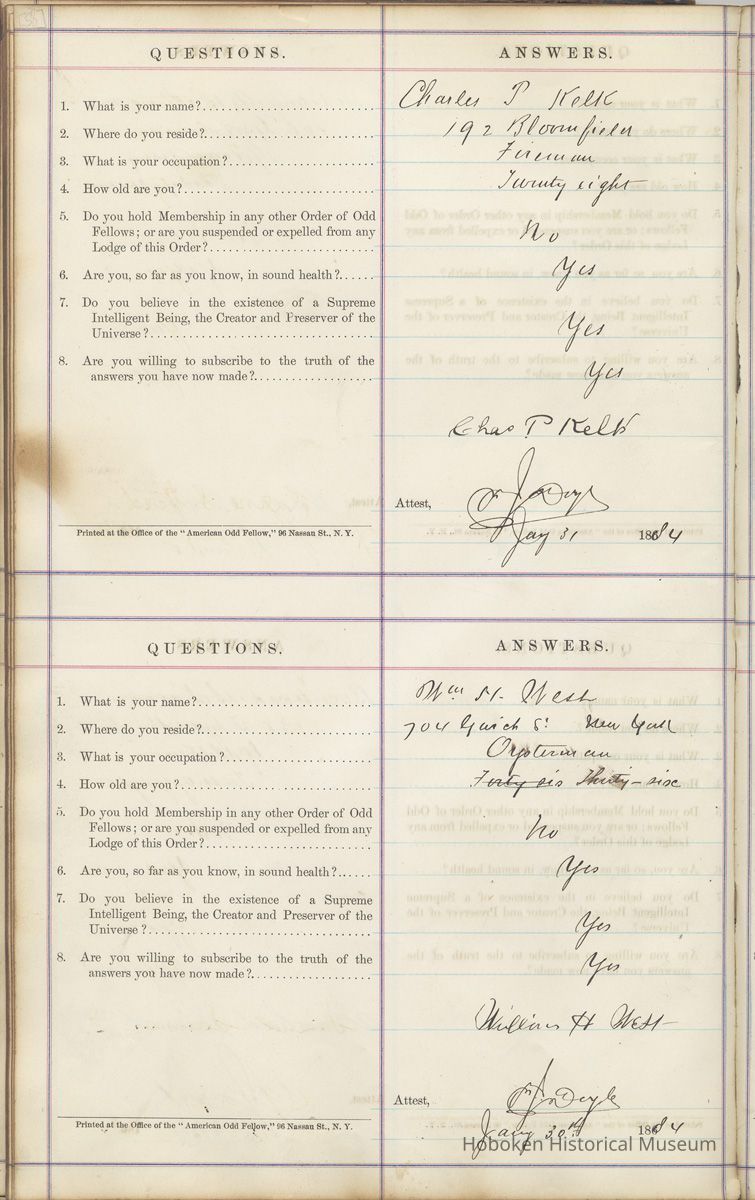 QUESTIONS. ANSWERS.
1. What is your name?.......................... Charles P Kelk
2. Where do you reside?......................... 192 Bloomfield
3. What is your occupation?...................... Fireman
4. How old are you?............................. Twenty eight
5. Do you hold Membership in any other Order of Odd
Fellows; or are you suspended or expelled from any
Lodge of this Order?......................... No
6. Are you, so far as you know, in sound health?...... Yes
7. Do you believe in the existence of a Supreme
Intelligent Being, the Creator and Preserver of the
Universe?.................................. Yes
8. Are you willing to subscribe to the truth of the
answers you have now made?................... Yes
Chas P Kelk
Attest, Doyle
Printed at the Office of the "American Odd Fellow," 96 Nassau St., N. Y. Jany 31 1884
QUESTIONS. ANSWERS.
1. What is your name?.......................... Wm H. West
2. Where do you reside?......................... 704 Gwich St New York
3. What is your occupation?...................... Oysterman
4. How old are you?............................. Forty six Thirty-six
5. Do you hold Membership in any other Order of Odd
Fellows; or are you suspended or expelled from any
Lodge of this Order?......................... No
6. Are you, so far as you know, in sound health?...... Yes
7. Do you believe in the existence of a Supreme
Intelligent Being, the Creator and Preserver of the
Universe?.................................. Yes
8. Are you willing to subscribe to the truth of the
answers you have now made?................... Yes
William H West
Attest, Doyle
Printed at the Office of the "American Odd Fellow," 96 Nassau St., N. Y. Jany 30th 1884
Hoboken Historical Museum